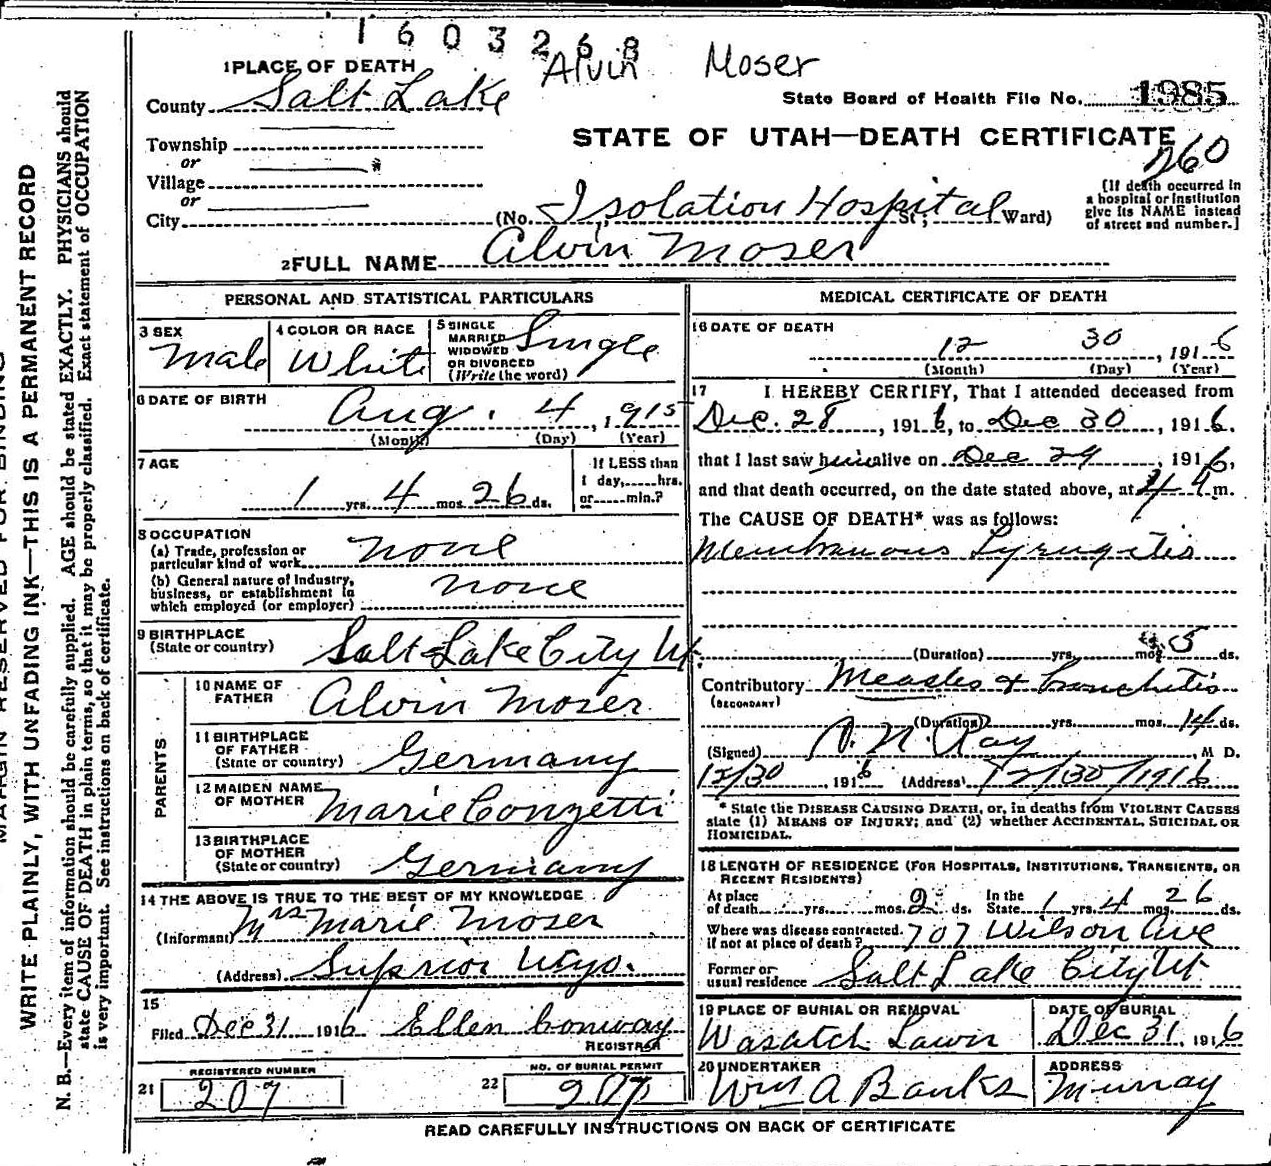 1603268
Alvin Moser
1 PLACE OF DEATH
County Salt Lake
State Board of Health File No. 1985
STATE OF UTAH—DEATH CERTIFICATE
Township
or
Village
or
City
260
(No. Isolation Hospital St.; Ward)
[If death occurred in
a hospital or institution
give its NAME instead
of street and number.]
2 FULL NAME Alvin Moser
PERSONAL AND STATISTICAL PARTICULARS
3 SEX
Male
4 COLOR OR RACE
White
5 SINGLE
MARRIED
WIDOWED
OR DIVORCED
(Write the word)
Single
6 DATE OF BIRTH
Aug. 4, 1915
(Month) (Day) (Year)
7 AGE
1 yrs. 4 mos. 26 ds.
If LESS than
1 day,.....hrs.
or.....min.?
8 OCCUPATION
(a) Trade, profession or
particular kind of work none
(b) General nature of Industry,
business, or establishment in
which employed (or employer) none
9 BIRTHPLACE
(State or country) Salt Lake City Ut
PARENTS
10 NAME OF
FATHER Alvin Moser
11 BIRTHPLACE
OF FATHER
(State or country) Germany
12 MAIDEN NAME
OF MOTHER Marie Conzetti
13 BIRTHPLACE
OF MOTHER
(State or country) Germany
14 THE ABOVE IS TRUE TO THE BEST OF MY KNOWLEDGE
(Informant) Mrs Marie Moser
(Address) Superior Wyo.
15
Filed Dec 31 1916 Ellen Conway
REGISTRAR
21 REGISTERED NUMBER
207
22 NO. OF BURIAL PERMIT
207
MEDICAL CERTIFICATE OF DEATH
16 DATE OF DEATH
12 30, 1916
(Month) (Day) (Year)
17 I HEREBY CERTIFY, That I attended deceased from
Dec. 28, 1916, to Dec 30, 1916.
that I last saw him alive on Dec 29, 1916,
and that death occurred, on the date stated above, at 4 m.
The CAUSE OF DEATH* was as follows:
Membranous Lyrngitis
(Duration) yrs. mos. 5 ds.
Contributory Measles & bronchitis
(SECONDARY)
(Duration) yrs. mos. 14 ds.
(Signed) Ray, M D.
12/30, 1916 (Address) 12/30/1916
* State the DISEASE CAUSING DEATH, or, in deaths from VIOLENT CAUSES
state (1) MEANS OF INJURY; and (2) whether ACCIDENTAL, SUICIDAL OR
HOMICIDAL.
18 LENGTH OF RESIDENCE (FOR HOSPITALS, INSTITUTIONS, TRANSIENTS, OR
RECENT RESIDENTS)
At place
of death yrs. mos. 2 ds.
In the
State 1 yrs. 4 mos. 26 ds.
Where was disease contracted,
if not at place of death? 707 Wilson Ave
Former or
usual residence Salt Lake City Ut
19 PLACE OF BURIAL OR REMOVAL
Wasatch Lawn
DATE OF BURIAL
Dec 31, 1916
20 UNDERTAKER
Wm A Banks
ADDRESS
Murray
READ CAREFULLY INSTRUCTIONS ON BACK OF CERTIFICATE
MARGIN RESERVED FOR BINDING
WRITE PLAINLY, WITH UNFADING INK—THIS IS A PERMANENT RECORD
N. B.—Every item of information should be carefully supplied. AGE should be stated EXACTLY. PHYSICIANS should
state CAUSE OF DEATH in plain terms, so that it may be properly classified. Exact statement of OCCUPATION
is very important. See instructions on back of certificate.